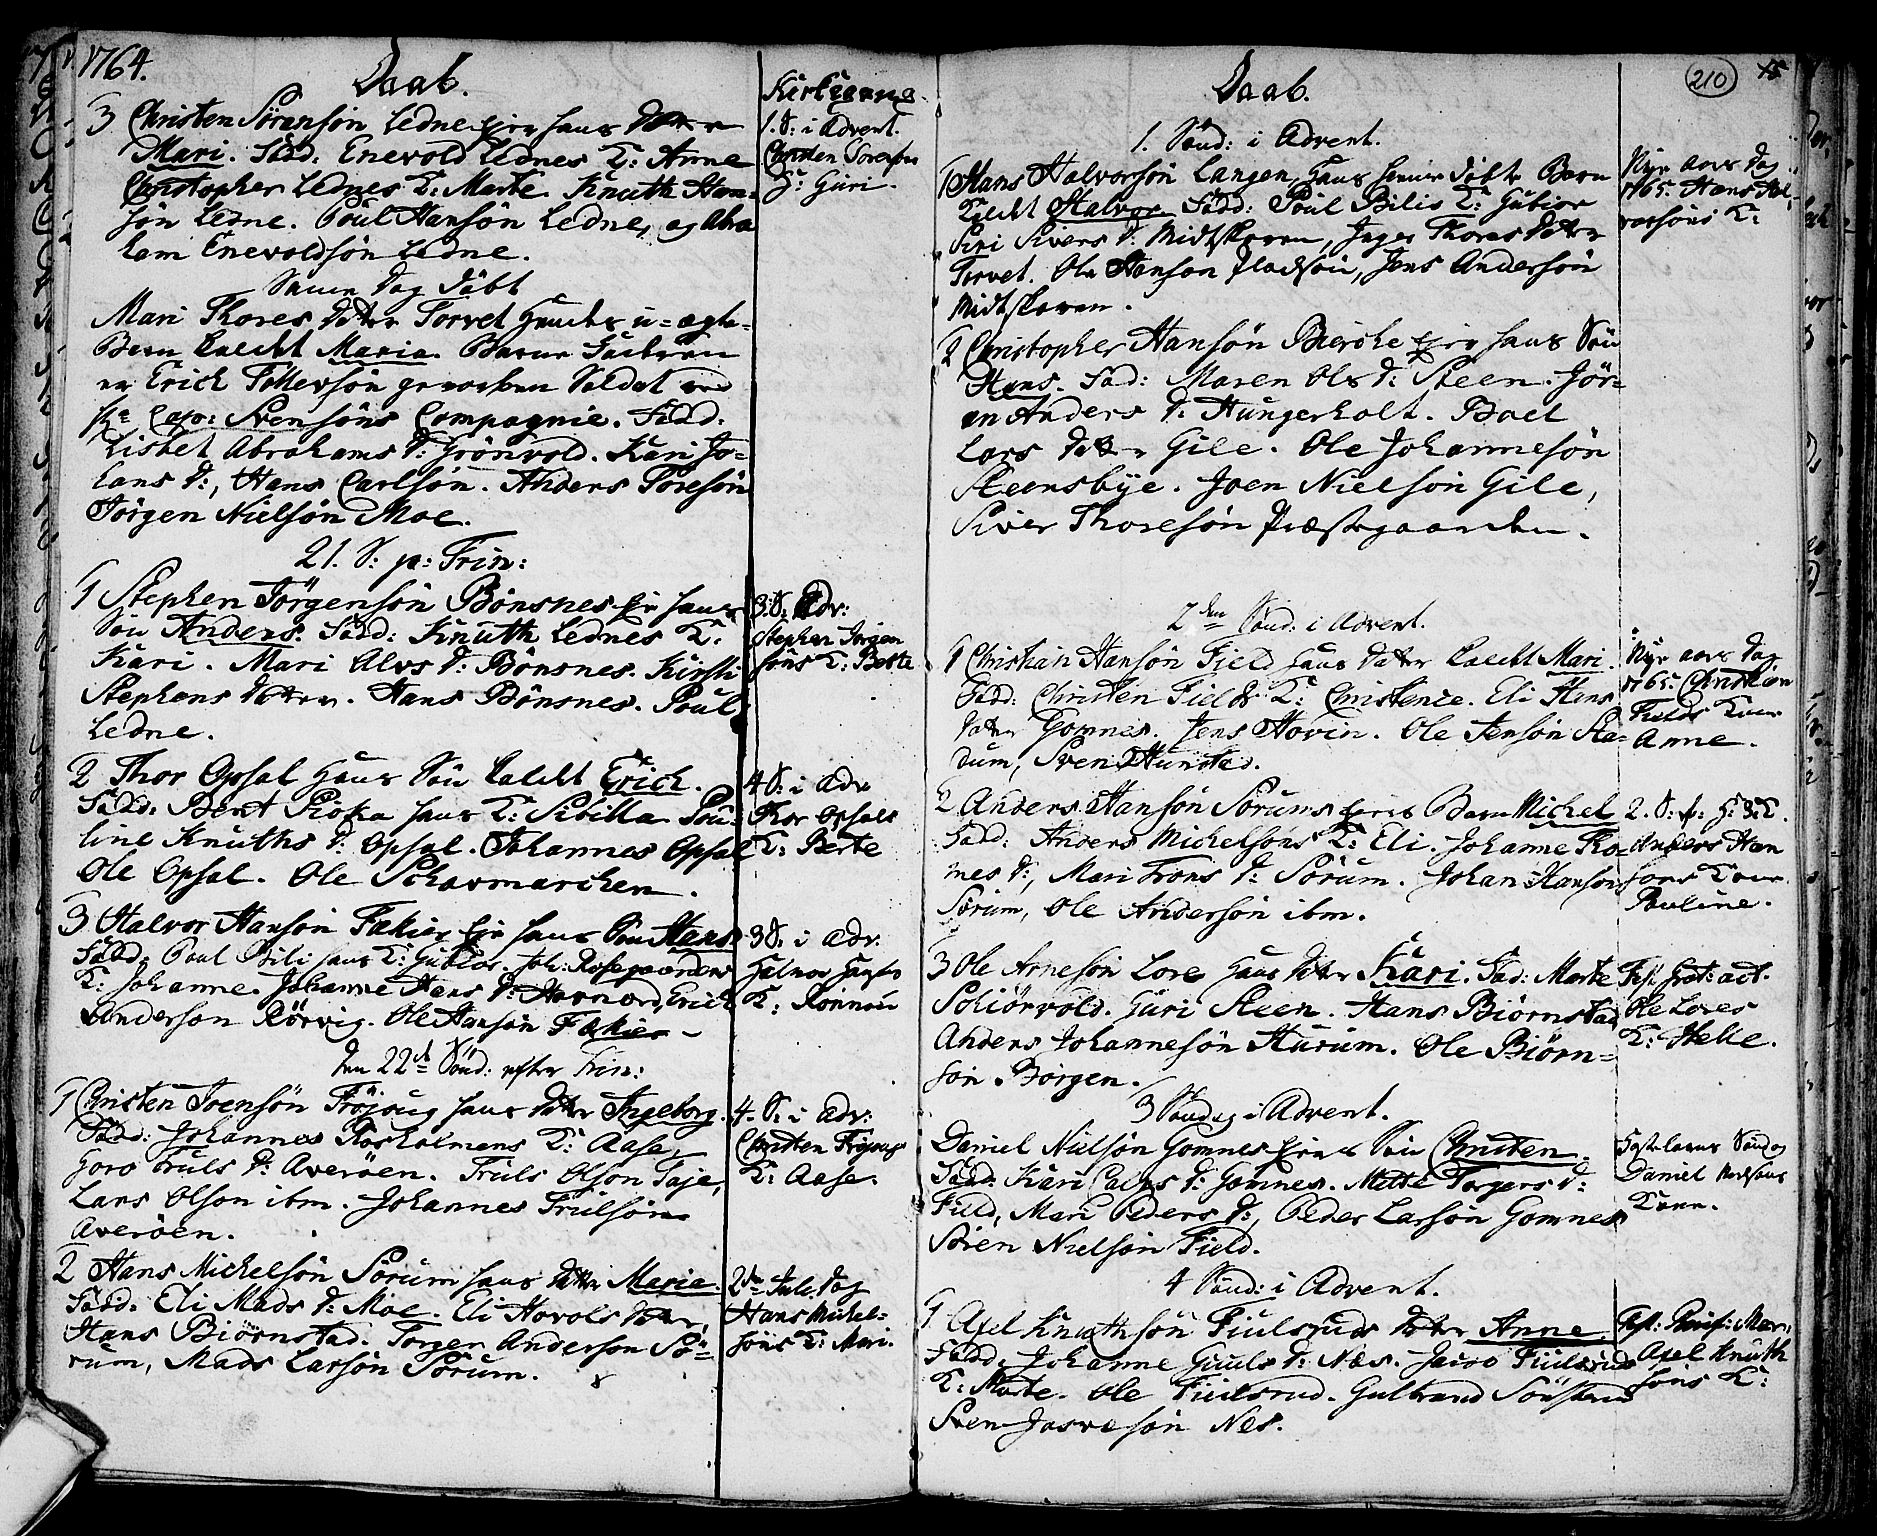 1764.
Daab.
3 Christen Sörensön Ledne hans datter
Mari. Fadd: Enevold Lednes K: Anne
Christopher Lednes K: Marte. Knuth Han-
sön Ledne. Poul Hansön Ledne, og Abra
ham Enevoldsön Ledne.
Samme dag döbt
Mari Thores datter Torvet u-ægte
Barn kaldt Maria. Barne Faderen
er Erich Pettersön Soldat
Cap: Svensöns Compagnie. Fadd.
Lisbet Abrahams d: Grönvold. Kari Jo-
hans d:, Hans Carlsön. Anders Toresön
Jörgen Nielsön Moe.
21. S: p: Trin:
1 Stephen Jörgensön Bönsnes hans
Sön Anders. Fadd: Knuth Lednes K:
Kari. Mari Alvs d: Bönsnes. Kirsti
Stephens datter. Hans Bönsnes. Poul
Ledne.
2 Thor Opsal hans Sön kaldt Erich.
Fadd: Bent Pioka hans K: Sibilla. Pou-
line Knuths d: Opsal. Johannes Opsal
Ole Opsal. Ole Scharmarchen.
3 Halvor Hansön Fakier hans Sön Hans
Fadd: Poul Bili hans K: Gubior. Joh: Rosegaardens
K: Johanne. Johanne Hans d: Havnord, Erich
Anderson Rörvig. Ole Hansön Fakier
den 22de Sönd: efter Trin:
1 Christen Joensön Fröjoug hans datter Ingeborg.
Fadd: Johannes Rosholmens K: Aase,
Goro Truls d: Averöen. Truls Olson Saje,
Lars Olson ibm. Johannes Trulsön
Averöen.
2 Hans Michelsön Sörum hans datter Maria.
Fadd: Eli Mads d: Moe. Eli Hovols datter,
Hans Biörnstad. Torger Anderson Sö-
rum, Mads Larsön Sörum.
Kirkegang
1. S: i Advent.
Christen Sorensöns
H: Guri.
3. S. Adv:
Stephen Jörgen
söns K: Berte
4 S: i Adv
Thor Opsals
K: Berte
3 S. i Adv:
Halvor
K: Rönnau
4. S: i Adv:
Christen Fröjougs
K: Aase.
2den Juledag
Hans Michel-
söns K: Mari.
210
Daab.
1. Sönd: i Advent.
1 Hans Halvorsön Langen, hans döbte Barn
kaldt Halvor. Fadd: Poul Bilis K: Gubior
Siri Sivers d: Midtskoven, Inger Thores datter
Torvet. Ole Hanson Jens Andersön
Midtskoven.
2 Christopher Hansön Bierche hans Sön
Hans. Fad: Maren Ols d: Steen. Jör-
en Anders d: Hungerholt. Boel
Lars datter Gile. Ole Johannesön
Steensbye. Joen Nielsön Gile,
Siver Thoresön Præstegaarden.
2den Sönd: i Advent.
1 Christian Hansön Field hans datter kaldt Mari.
Fadd: Christen Fields K: Christence. Eli Hans
datter Gomnes. Jens Hovin. Ole Jensön Sta-
dum, Sven Hunstad.
2 Anders Hansön Sorums Barn Michel
Fadd: Anders Michelsöns K: Eli. Johanne Tho-
mes d:, Mari Trons d: Sörum. Johan Hanson
Sörum, Ole Andersön ibm.
3 Ole Arnesön Lore hans datter Kari. Fad: Marte
Schiörvold. Guri Steen. Hans Biörnstad
Anders Johannesön Hurum. Ole Biörn-
sön Börgen.
3 Söndag i Advent.
Daniel Nielsön Gomnes Sön Christen.
Fadd: Kari d: Gomnes. Mette Torgers d:
Field, Mari Peders d:, Peder Larsön Gomnes
Sören Nielsön Field.
4 Sönd: i Advent.
1 Axel Knuthsön Fiulsruds datter Anne.
Fadd: Johanne Guuls d: Næs. Fiulsruds
K: Marte. Ole Fiulsrud. Gulbrand
Sven Nes.
Nye aars dag
1765. Hans Hal-
vorsöns K:
Nye aars dag
1765. Christian
Fields Kone
Anne.
2. S. p. H: 3: K.
Anders Han
sons Kone
Pauline.
Ole Lores
K: Helle.
Fastelavns Söndag
Daniel Nielsöns
Kone.
Fest: Purif: Mar:,
Axel Knuth
söns K: